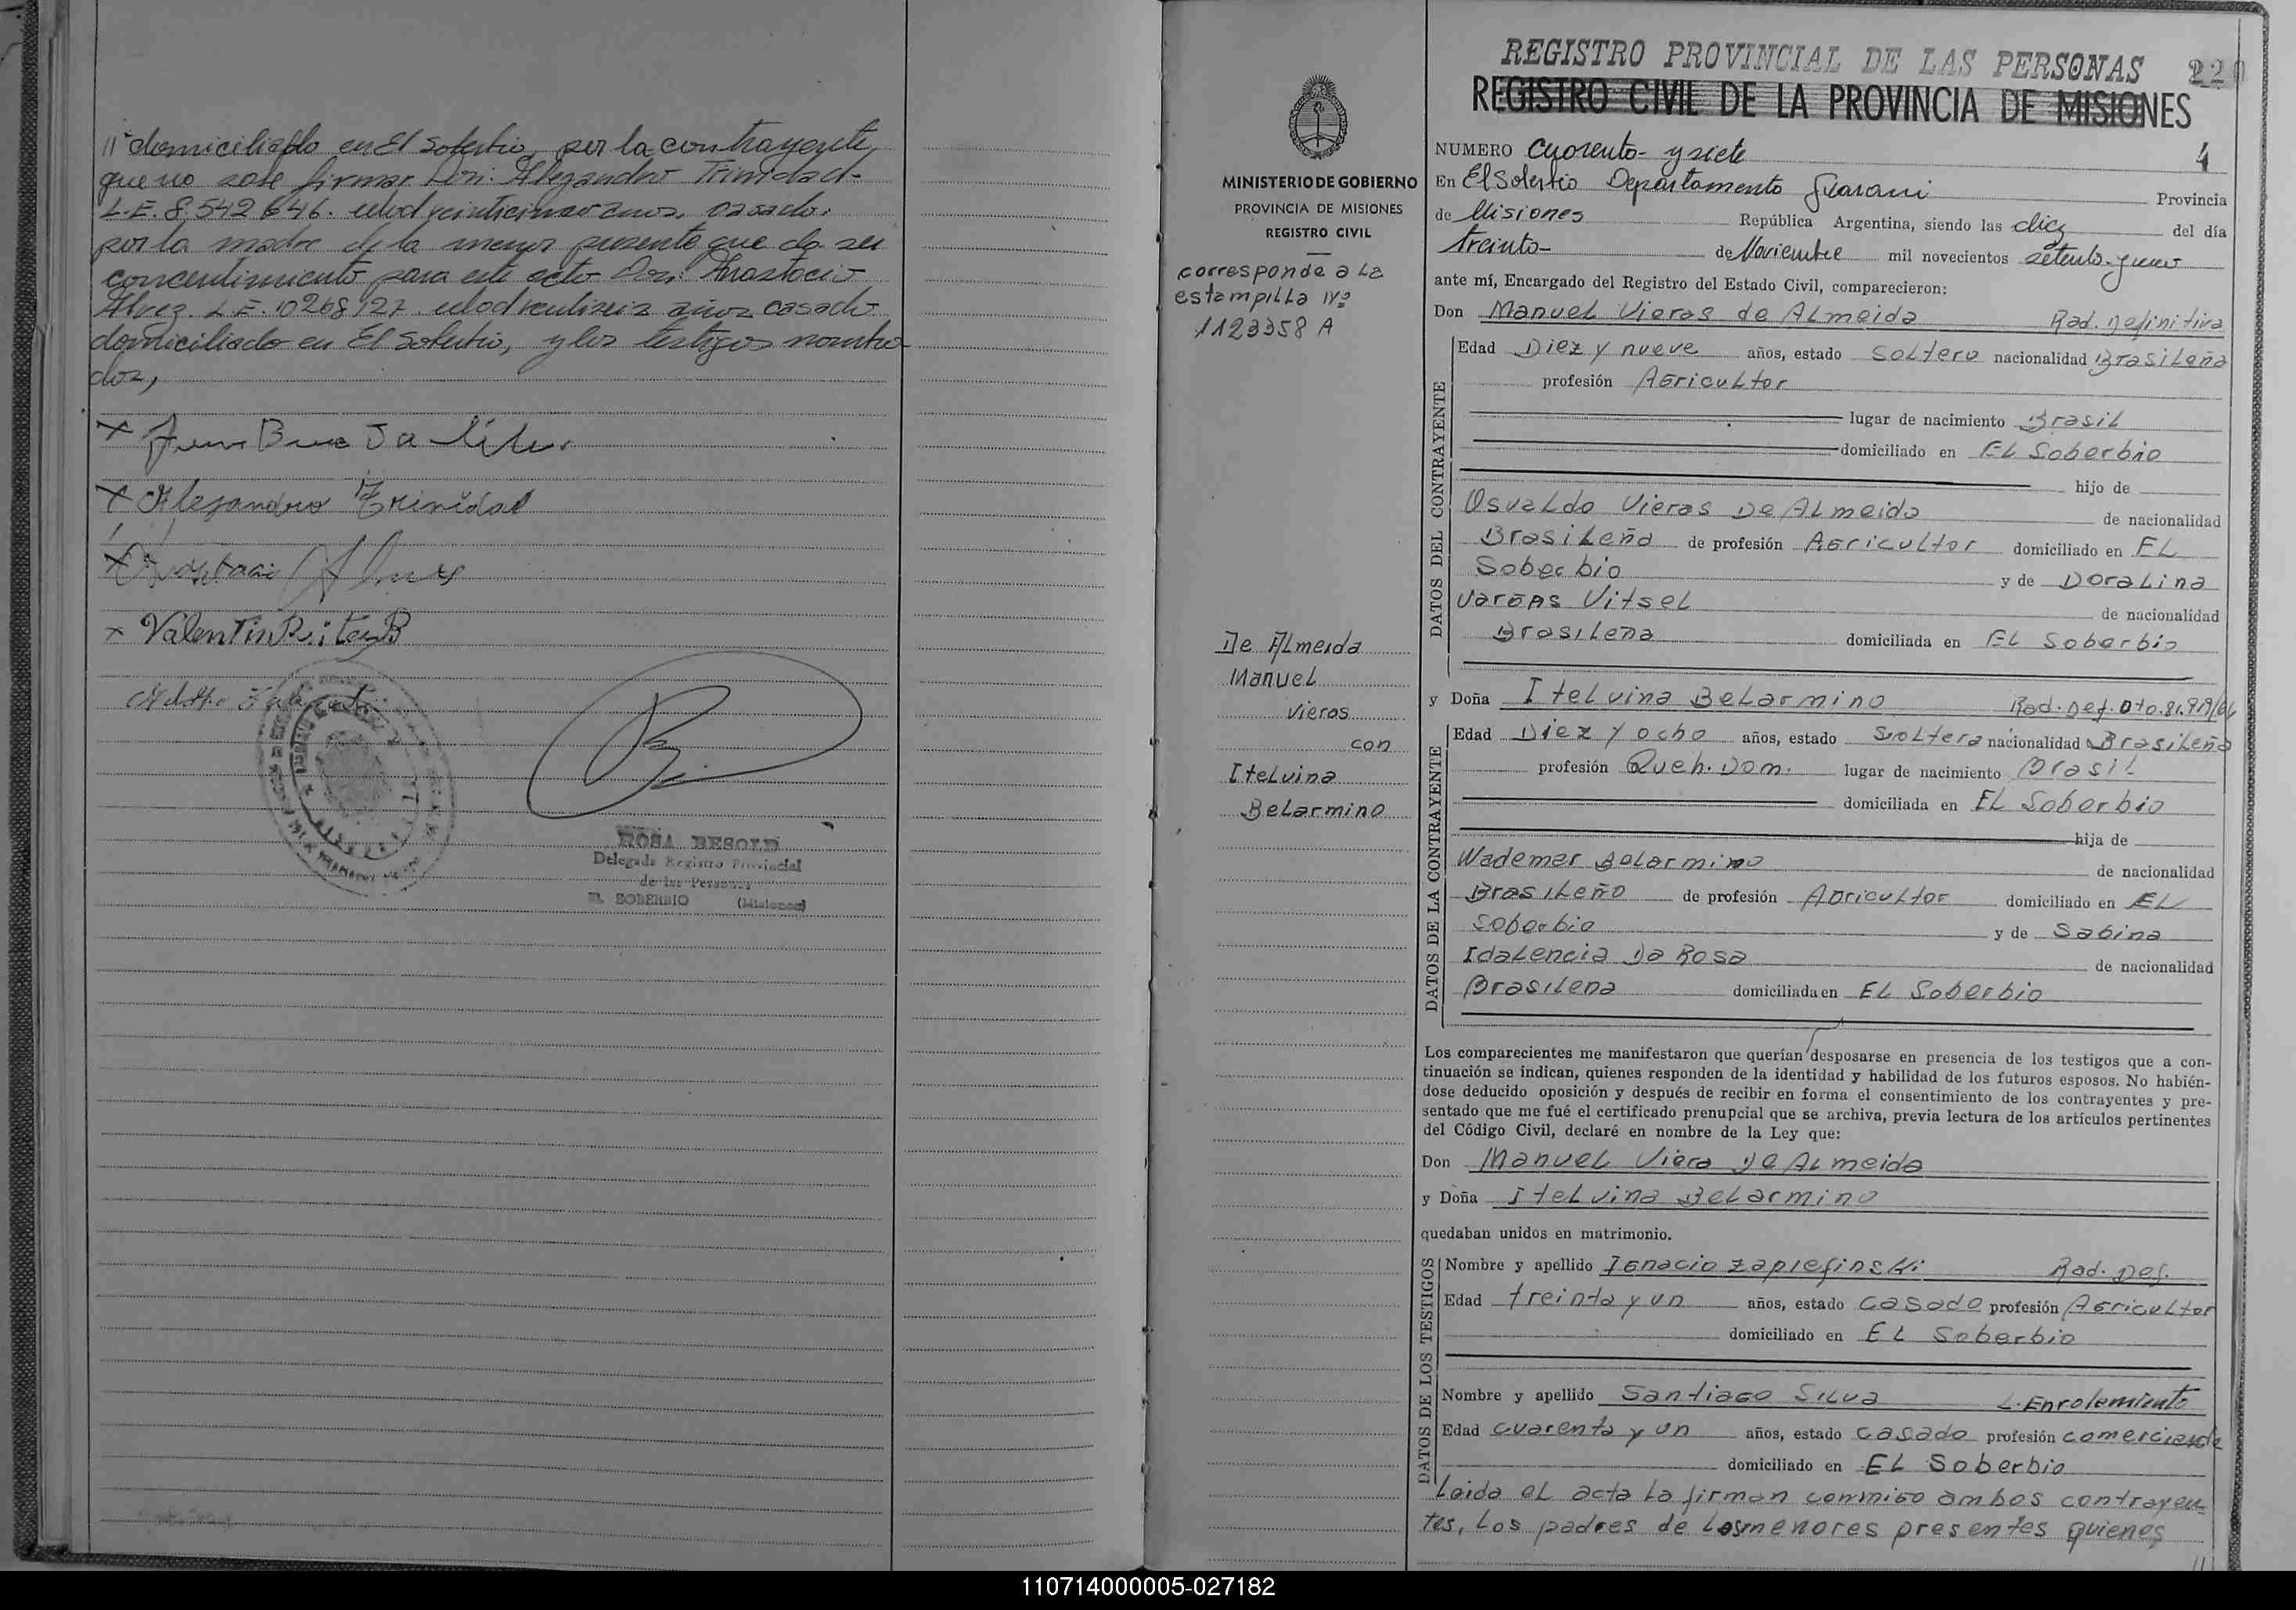 domiciliado en El Soberbio, por la contrayente,
que no sabe firmar Don: Alejandro Trinidad-
L.E. 8.542.646. edad veinticinco años, casado.
por la madre de la menor presente que da su
concentimiento para este acto Don: Anastacio
Alvez. L.E. 10268927. edad años casado
domiciliado en El Soberbio, y los testigos nombra-
dos,
x
x Alejandro Trinidad
x
x Valentin
ROSA BESOLD
Delegada Registro Provincial
de las Personas
EL SOBERBIO (Misiones)
MINISTERIO DE GOBIERNO
PROVINCIA DE MISIONES
REGISTRO CIVIL
corresponde a La
estampilla Nº
1123358 A
De Almeida
Manuel
Vieras
con
Itelvina
Belarmino
REGISTRO PROVINCIAL DE LAS PERSONAS 220
REGISTRO CIVIL DE LA PROVINCIA DE MISIONES
NUMERO Cuarenta- y siete 4
En El Soberbio Departamento Guarani Provincia
de Misiones República Argentina, siendo las diez del día
treinta- de Noviembre mil novecientos setenta y uno
ante mí, Encargado del Registro del Estado Civil, comparecieron:
Don Manuel Vieras de Almeida Rad. Definitiva
DATOS DEL CONTRAYENTE
Edad Diez y nueve años, estado Soltero nacionalidad Brasileña
profesión Agricultor
lugar de nacimiento Brasil
domiciliado en El Soberbio
hijo de
Osvaldo Vieras De Almeida de nacionalidad
Brasileña de profesión Agricultor domiciliado en El
Soberbio y de Doralina
Vargas Vitsel de nacionalidad
Brasileña domiciliada en El Soberbio
y Doña Itelvina Belarmino Rad. Def. Dto. 81.919/64
DATOS DE LA CONTRAYENTE
Edad Diez y ocho años, estado Soltera nacionalidad Brasileña
profesión Queh. Dom. lugar de nacimiento Brasil
domiciliada en El Soberbio
hija de
Wademar Belarmino de nacionalidad
Brasileño de profesión Agricultor domiciliado en El
Soberbio y de Sabina
Idalencia Da Rosa de nacionalidad
Brasilena domiciliada en El Soberbio
Los comparecientes me manifestaron que querían desposarse en presencia de los testigos que a con-
tinuación se indican, quienes responden de la identidad y habilidad de los futuros esposos. No habién-
dose deducido oposición y después de recibir en forma el consentimiento de los contrayentes y pre-
sentado que me fué el certificado prenupcial que se archiva, previa lectura de los artículos pertinentes
del Código Civil, declaré en nombre de la Ley que:
Don Manuel Viera De Almeida
y Doña Itelvina Belarmino
quedaban unidos en matrimonio.
DATOS DE LOS TESTIGOS
Nombre y apellido Ignacio Zaplefinski Rad. Def.
Edad treinta y un años, estado casado profesión Agricultor
domiciliado en El Soberbio
Nombre y apellido Santiago Silva L. Enrolamiento
Edad cuarenta y un años, estado casado profesión comerciante
domiciliado en El Soberbio
Leida el acta la firman conmigo ambos contrayen-
tes, Los padres de los menores presentes quienes
//
110714000005-027182